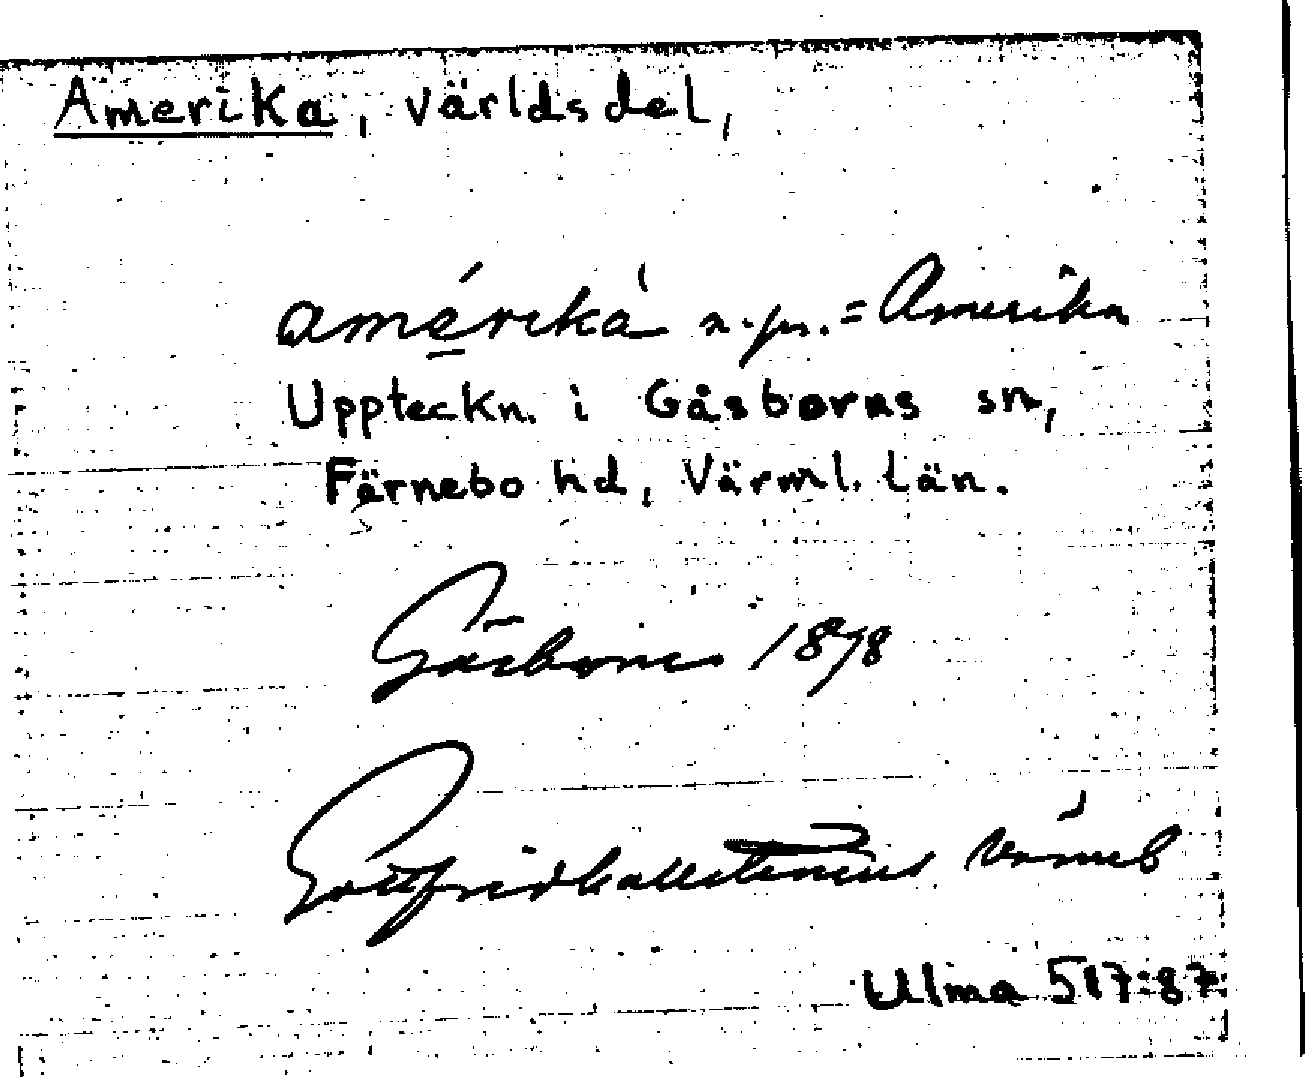 Amerika, världsdel,
amérika n. pr. = Amerika
Uppteckn. i Gåsborns sn,
Färnebo hd, Värml. län.
Gåsborn 1878
Gottfrid Kallstenius
Ulma 517:87